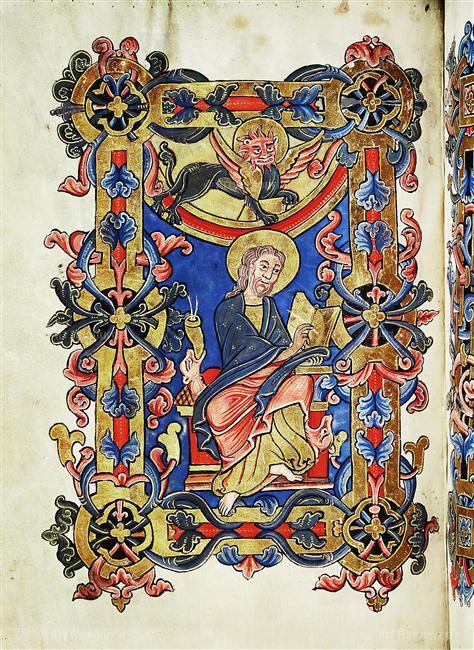 Art Resource
Art Resource